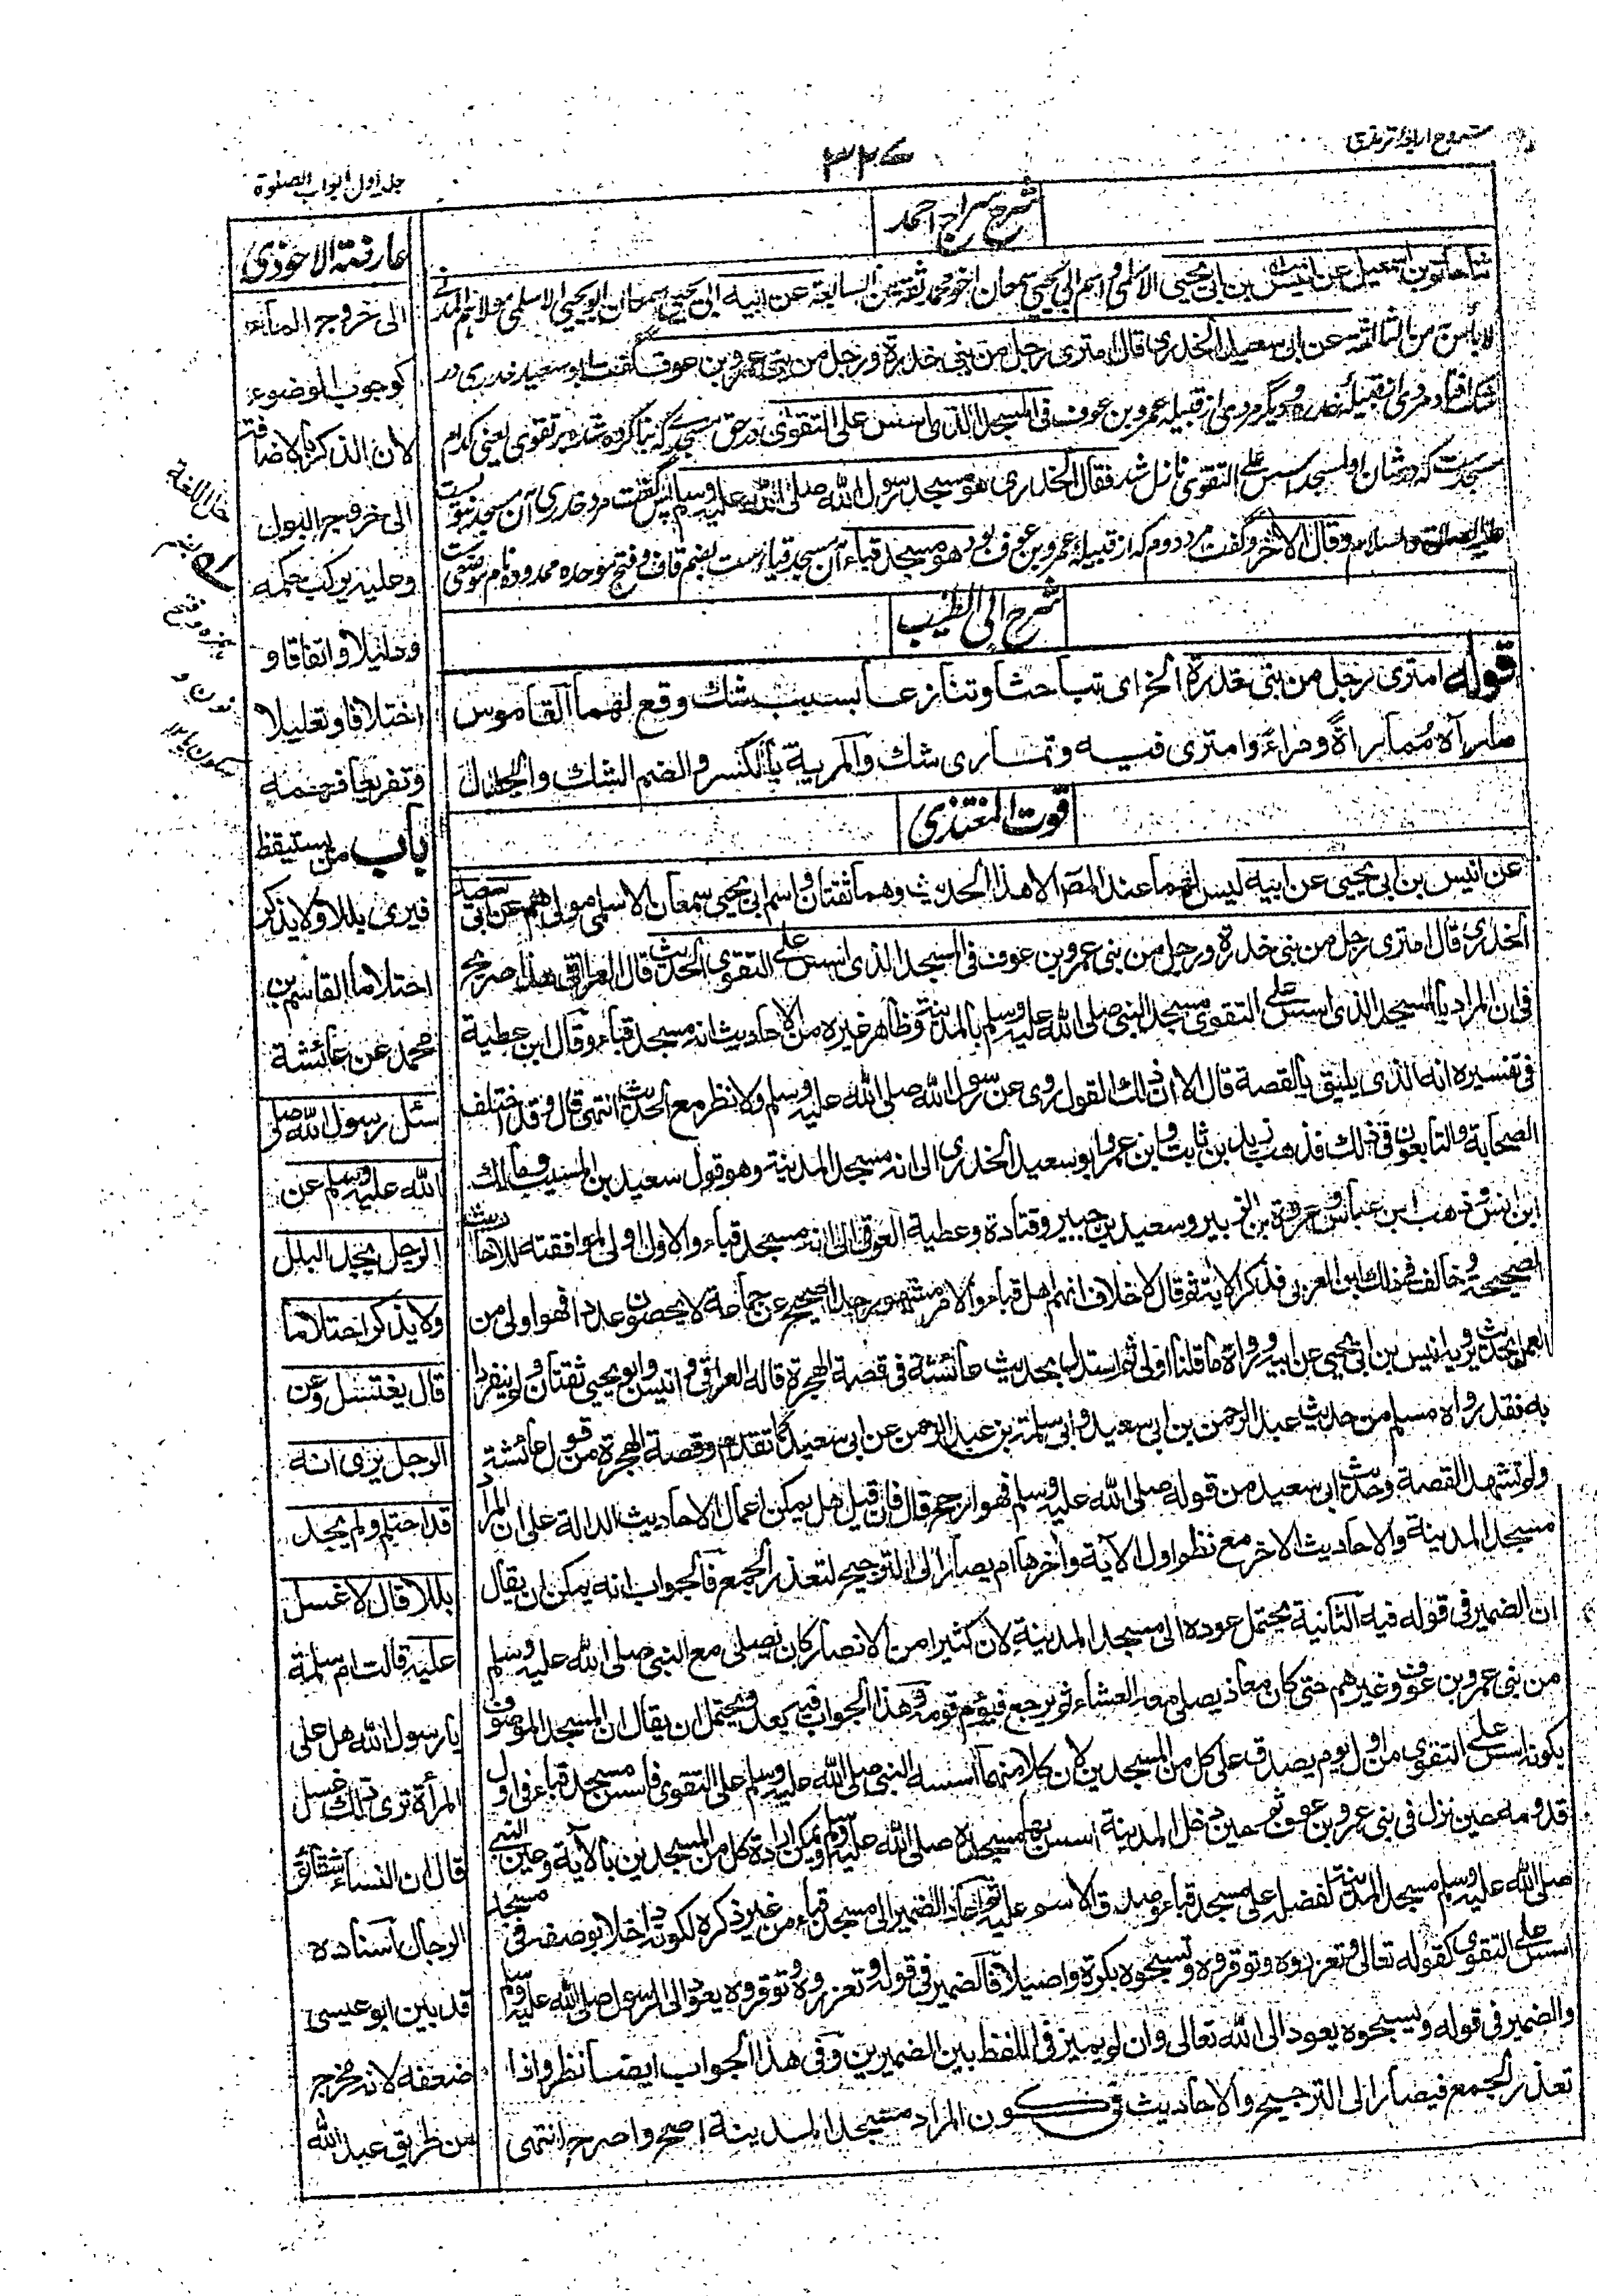 شروح اربعه ترمذی
۳۲۷
جلد اول ابواب الصلوة
شرح سراج احمد
ثنا حاتم بن اسمعیل عن انیس بن ابی یحیی الاسلمی واسم ابی یحیی سمعان اخو محمد ثقة من السابعة عن ابیه ابی یحیی سمعان ابو یحیی الاسلمی مولاهم المدنی
لا بأس من الثالثة عن ابی سعید الخدری قال امتری رجل من بنی خدرة ورجل من بنی عمرو بن عوف گفت ابو سعید خدری در
شک افتاد مردی از قبیلۂ خدره و دیگر مردی از قبیله عمرو بن عوف فی المسجد الذی اسس علی التقوی در حق مسجدے که بنا کرده شده بر تقوی یعنی کدام
مسجد ست که در شان او لمسجد اسس علی التقوی نازل شد فقال الخدری هو مسجد رسول الله صلی الله علیه وسلم پس گفت مرد خدری آن مسجد نبویست
علیه الصلوة والسلام وقال الآخر و گفت مرد دوم که از قبیلۂ عمرو بن عوف بود هو مسجد قباء آن مسجد قباء ست بضم قاف و فتح موحده ممدوده نام موضعی ست
شرح ابی الطیب
قوله امتری رجل من بنی خدرة الخ ای تباحثا وتنازعا بسبب شك وقع لهما القاموس
ماراه مُماراةً ومراءً وامتری فیه وتماری شك والمریة بالکسر والضم الشك والجدال
قوت المغتذی
عن انیس بن ابی یحیی عن ابیه لیس لهما عند المص الا هذا الحدیث وهما ثقتان واسم ابی یحیی سمعان الاسلمی مولاهم عن ابی سعید
الخدری قال امتری رجل من بنی خدرة ورجل من بنی عمرو بن عوف فی المسجد الذی اسس علی التقوی الحدیث قال العراقی هذا صریح
فی ان المراد بالمسجد الذی اسس علی التقوی مسجد النبی صلی الله علیه وسلم بالمدینة وظاهر غیره من الاحادیث انه مسجد قباء وقال ابن عطیة
فی تفسیره انه الذی یلیق بالقصة قال الا ان ذلك القول روی عن رسول الله صلی الله علیه وسلم ولا نظر مع الحدیث انتهی قال وقد اختلف
الصحابة والتابعون فی ذلك فذهب زید بن ثابت وابن عمر وابو سعید الخدری الی انه مسجد المدینة وهو قول سعید بن المسیب ومالك
ابن انس وذهب ابن عباس وعروة بن الزبیر وسعید بن جبیر وقتادة وعطیة العوفی الی انه مسجد قباء والاول اولی لموافقته للاحادیث
الصحیحة وخالف فی ذلك ابن العربی فذکر الآیة ثم قال لا خلاف انهم اهل قباء والامر مشهور جدا صحیح عن جماعة لا یحصون عددا فهو اولی من
العمل بحدیث یرویه انیس بن ابی یحیی عن ابیه ورواة ما قلنا اولی ثم استدل بحدیث عائشة فی قصة الهجرة قاله العراقی وانیس وابو یحیی ثقتان ولم ینفردا
به فقد رواه مسلم من حدیث عبد الرحمن بن ابی سعید وابی سلمة بن عبد الرحمن عن ابی سعید کما تقدم وقصة الهجرة من قول عائشة
ولم تشهد القصة وحدیث ابی سعید من قوله صلی الله علیه وسلم فهو ارجح قال فان قیل هل یمکن اعمال الاحادیث الدالة علی ان المراد
مسجد المدینة والاحادیث الاخر مع نظم اول الآیة وآخرها ام یصار الی الترجیح لتعذر الجمع فالجواب انه یمکن ان یقال
ان الضمیر فی قوله فیه الثانیة یحتمل عوده الی مسجد المدینة لان کثیرا من الانصار کان یصلی مع النبی صلی الله علیه وسلم
من بنی عمرو بن عوف وغیرهم حتی کان معاذ یصلی معه العشاء ثم یرجع فیؤم قومه وهذا الجواب فیه بعد ویحتمل ان یقال ان المسجد الموصوف
بکونه اسس علی التقوی من اول یوم یصدق علی کل من المسجدین لان کلا منهما اسسه النبی صلی الله علیه وسلم علی التقوی فاسس مسجد قباء فی اول
قدومه حین نزل فی بنی عمرو بن عوف ثم حین دخل المدینة اسس بها مسجده صلی الله علیه وسلم ویمکن ارادة کل من المسجدین بالآیة وعین النبی
صلی الله علیه وسلم مسجد المدینة لفضله علی مسجد قباء وصدق الاسم علیه ثم اعاد الضمیر الی مسجد قباء من غیر ذکره لکونه داخلا بوصفه فی مسجد
اسس علی التقوی کقوله تعالی وتعزروه وتوقروه وتسبحوه بکرة واصیلا فالضمیر فی قوله وتعزروه وتوقروه یعود الی الرسول صلی الله علیه وسلم
والضمیر فی قوله ویسبحوه یعود الی الله تعالی وان لم یمیز فی اللفظ بین الضمیرین وفی هذا الجواب ایضا نظر واذا
تعذر الجمع فیصار الی الترجیح والاحادیث فی کون المراد مسجد المدینة اصح واصرح انتهی
عارضة الاحوذی
الی خروج الماء
کوجوب الوضوء
لان الذکر بالاضافة
الی خروج البول
وعلیه یرکب حکمه
ودلیلا واتفاقا و
اختلافا وتعلیلا
وتفریعا فرحمه
باب من یستیقظ
فیری بللا ولا یذکر
احتلاما القاسم بن
محمد عن عائشة
سئل رسول الله صلی
الله علیه وسلم عن
الرجل یجد البلل
ولا یذکر احتلاما
قال یغتسل وعن
الرجل یری انه
قد احتلم ولم یجد
بللا قال لا غسل
علیه قالت ام سلمة
یا رسول الله هل علی
المرأة تری ذلك غسل
قال ان النساء شقائق
الرجال اسناده
قد بین ابو عیسی
ضعفه لانه مخرج
من طریق عبد الله
حل اللغة
همزه و فتح
نون و
سکون یاء